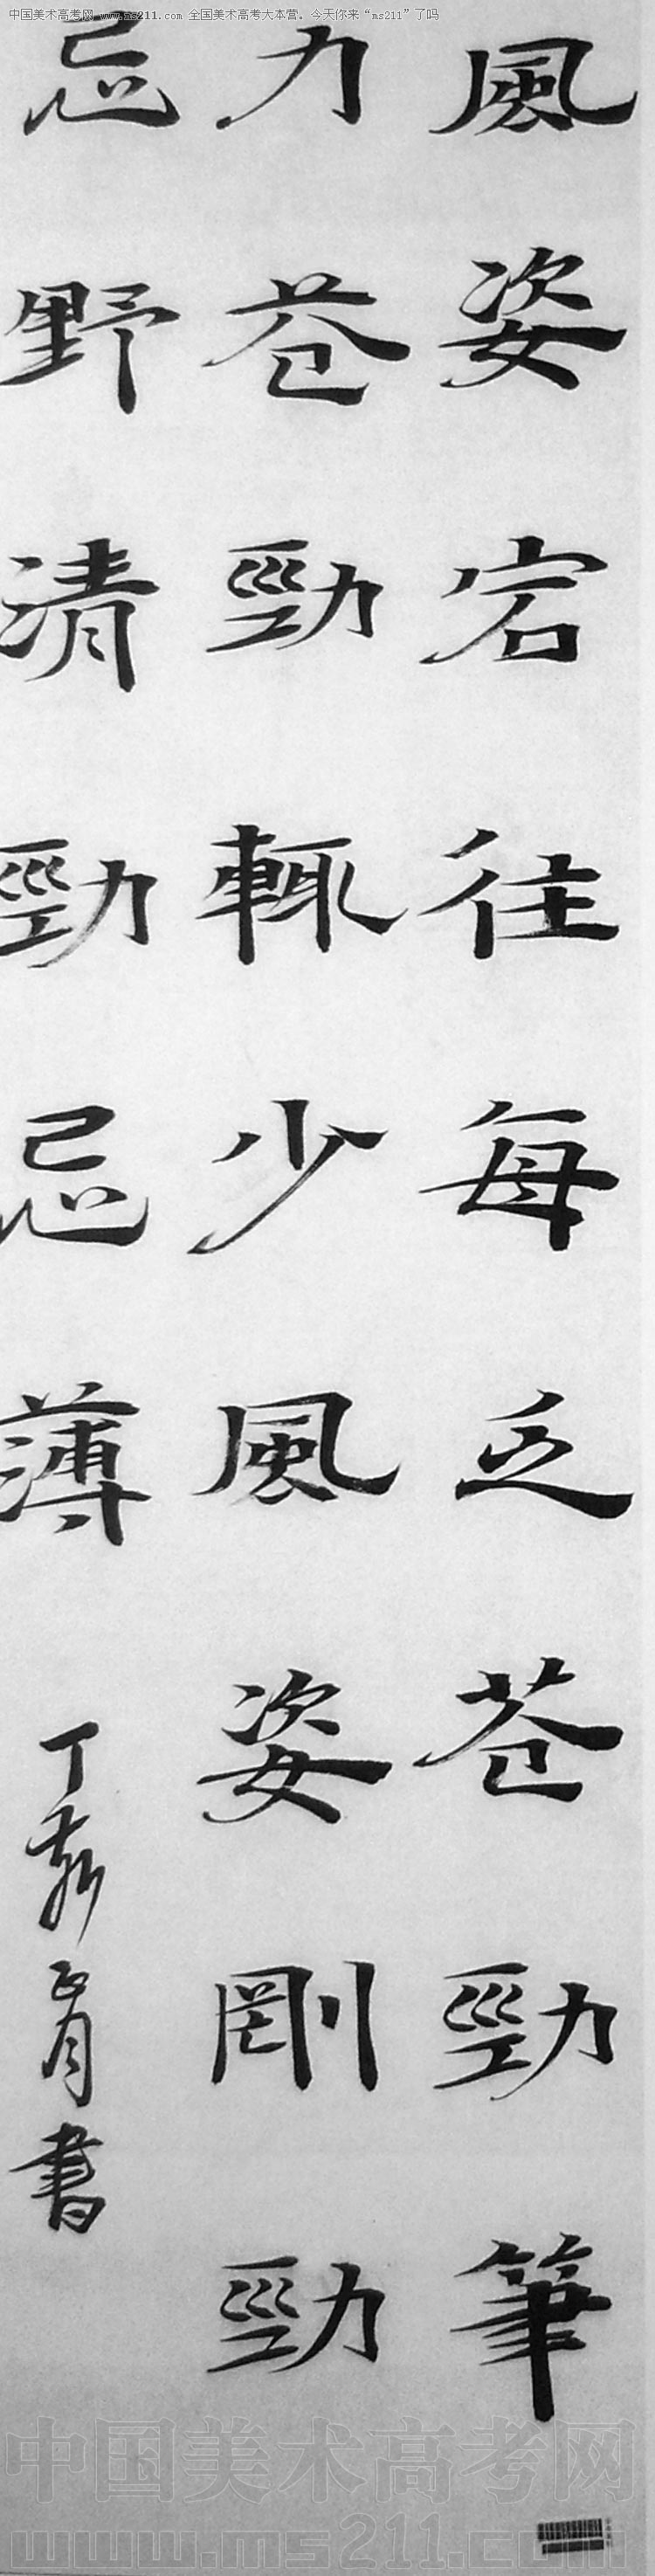 中国美术高考网 www.ms211.com 全国美术高考大本营。今天你来“ms211”了吗
風姿宕往每乏苍勁筆
力苍勁輒少風姿剛勁
忌野清勁忌薄
丁亥正月書
中国美术高考网
www.ms211.com